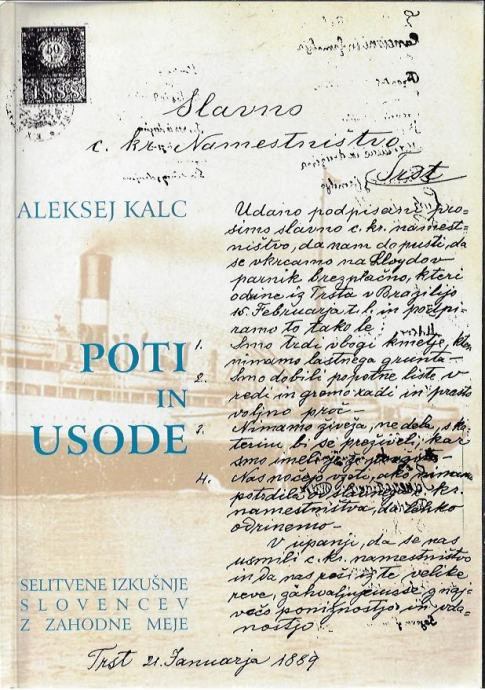 50
1888
Slavno
c. kr. Namestništvo
Trst
ALEKSEJ KALC
Udano podpisani pro-
simo slavno c. kr. namest-
ništvo, da nam dopusti, da
se vkrcamo na Lloydov
parnik brezplačno, kteri
odide iz Trsta v Brazilijo
15. Februarja t. l. in podpi-
ramo to tako le
1. Smo trdi ubogi kmetje, kte
nimamo lastnega grunta -
2. Smo dobili popotne liste v
redi in gremo radi in prosto
voljno proč -
3. Nimamo živeža, ne dela, s ka-
terim bi se preživeli, kar
smo imeli je že
4. Nas nočejo vzeti, ako nimamo
potrdila od slavnega c. kr.
namestništva, da lahko
odrinemo -
V upanji, da se nas
usmili c. kr. namestništvo
in da nas reši iz te velike
reve, zahvaljujemo se z naj-
večo ponižnostjo in uda-
nostjo
POTI
IN
USODE
SELITVENE IZKUŠNJE
SLOVENCEV
Z ZAHODNE MEJE
Trst 21. Januarja 1889